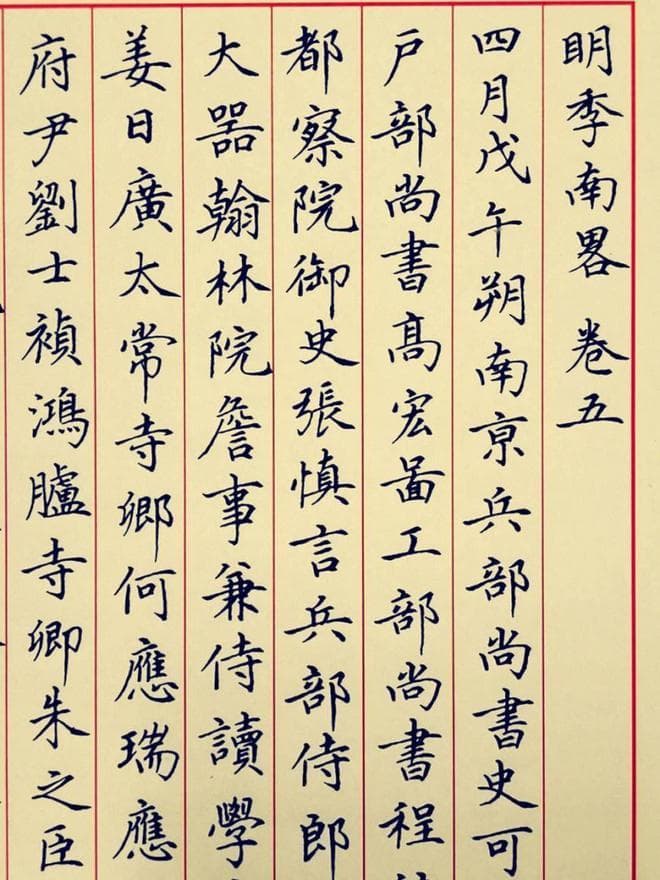 明季南畧 卷五
四月戊午朔南京兵部尚書史可
戶部尚書高宏啚工部尚書程
都察院御史張慎言兵部侍郎
大器翰林院詹事兼侍讀學
姜日廣太常寺卿何應瑞應
府尹劉士禎鴻臚寺卿朱之臣